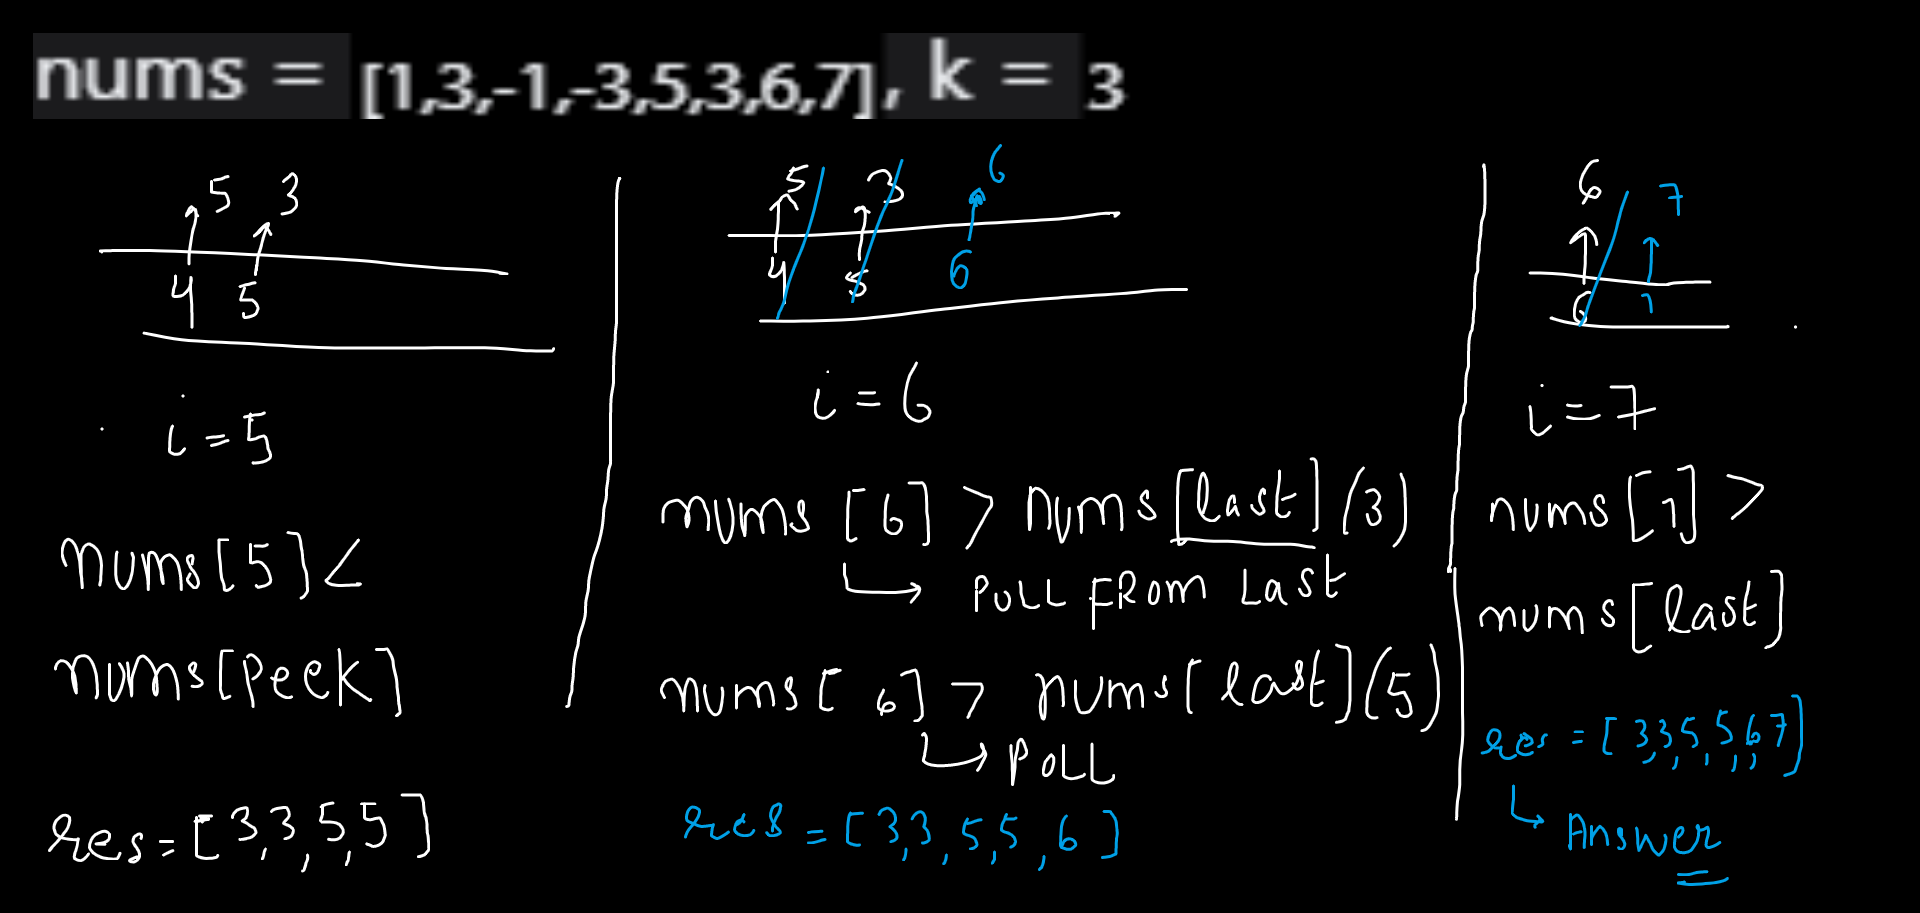 nums = [1,3,-1,-3,5,3,6,7], k = 3
5 3
4 5
i = 5
nums[5] <
nums[peek]
res = [3,3,5,5]
5 3 6
4 5 6
i = 6
nums [6] > nums[last] (3)
POLL FROM Last
nums[6] > nums[last] (5)
POLL
res = [3,3,5,5,6]
6 7
6 7
i = 7
nums[7] >
nums[last]
res = [3,3,5,5,6,7]
Answer